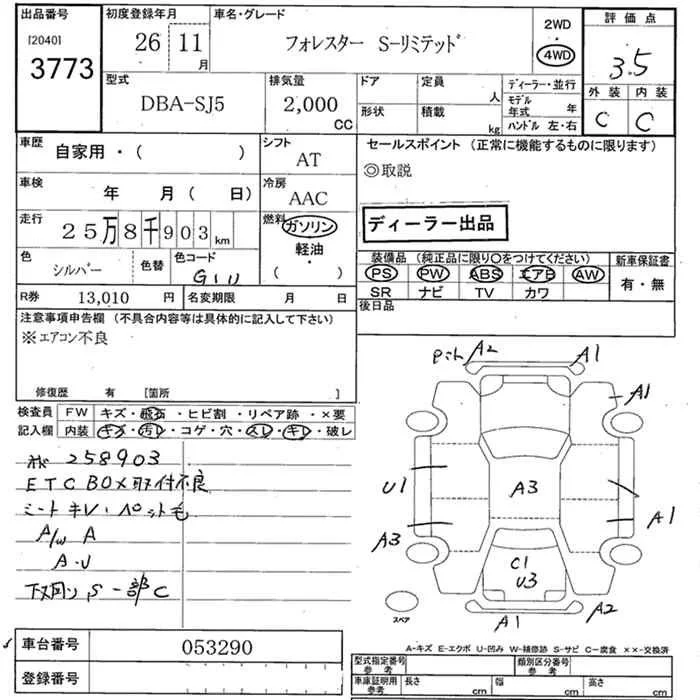 出品番号 初度登録年月 車名・グレード 2WD 評価点
[2040] 26 11月 フォレスター S-リミテッド 4WD 3.5
3773
型式 排気量 ドア 定員 人 ディーラー・並行 外装 内装
DBA-SJ5 2,000 CC 形状 積載 kg モデル年式 年 C C
ハンドル 左・右
車歴 自家用・( ) シフト AT セールスポイント (正常に機能するものに限ります)
◎取説
車検 年 月 ( 日) 冷房 AAC
走行 25万8千903km 燃料 ガソリン ディーラー出品
軽油
・( )
色 シルバー 色替 色コード G1U 装備品 (純正品に限り○をつけてください) 新車保証書
PS PW ABS エアB AW 有・無
SR ナビ TV カワ
R券 13,010 円 名変期限 月 日 後日品
注意事項申告欄 (不具合内容等は具体的に記入して下さい)
※エアコン不良
修復歴 有 [箇所 ]
検査員 FW キズ・飛石・ヒビ割・リペア跡・×要
記入欄 内装 キズ・汚レ・コゲ・穴・スレ・キレ・破レ
258903
ETC BOX取付不良
シートキレ・ペット毛
A/W A
A・U
下回り S 一部C
A2 A1
A1
U1 A3 A1
A3
C1
U3
A1 A2
スペア
A-キズ E-エクボ U-凹み W-補修跡 S-サビ C-腐食 ××-交換済
車台番号 053290
登録番号
型式指定番号 参考 類別区分番号 参考
車庫証明用 参考 長さ cm 幅 cm 高さ cm